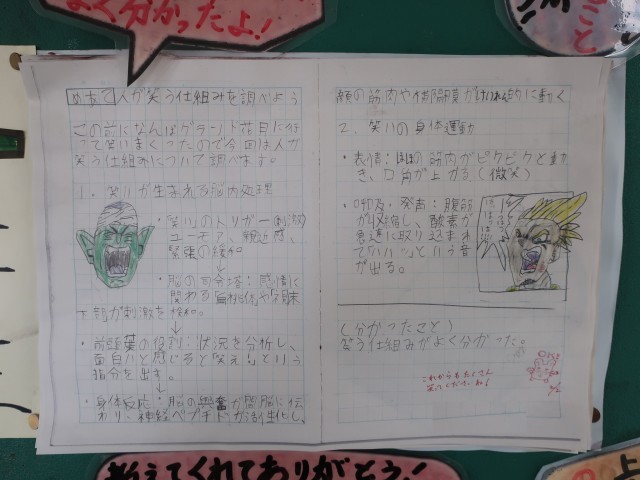 よく分かったよ!
こと
めあて人が笑う仕組みを調べよう
この前になんばグランド花月に行
って笑いまくったので今回は人が
笑う仕組みについて調べます。
1. 笑いが生まれる脳内処理
・笑いのトリガー(刺激)
ユーモア、親近感、
緊張の緩和
↓
・脳の司令塔:感情に
関わる扁桃体や視床
下部が刺激を検知。
↓
・前頭葉の役割:状況を分析し、
面白いと感じると「笑え」という
指令を出す。
↓
・身体反応:脳の興奮が間脳に伝
わり、神経ペプチドが活性化し、
顔の筋肉や横隔膜がけいれん的に動く
2. 笑いの身体運動
・表情:頬の筋肉がピクピクと動
き、口角が上がる(微笑)
・呼吸・発声:腹筋
が収縮し、酸素が
急速に取り込まれ
て「ハハハ」という音
が出る。
(分かったこと)
笑う仕組みがよく分かった。
これからもたくさん
笑ってくださいね!
教えてくれてありがとう!
の上